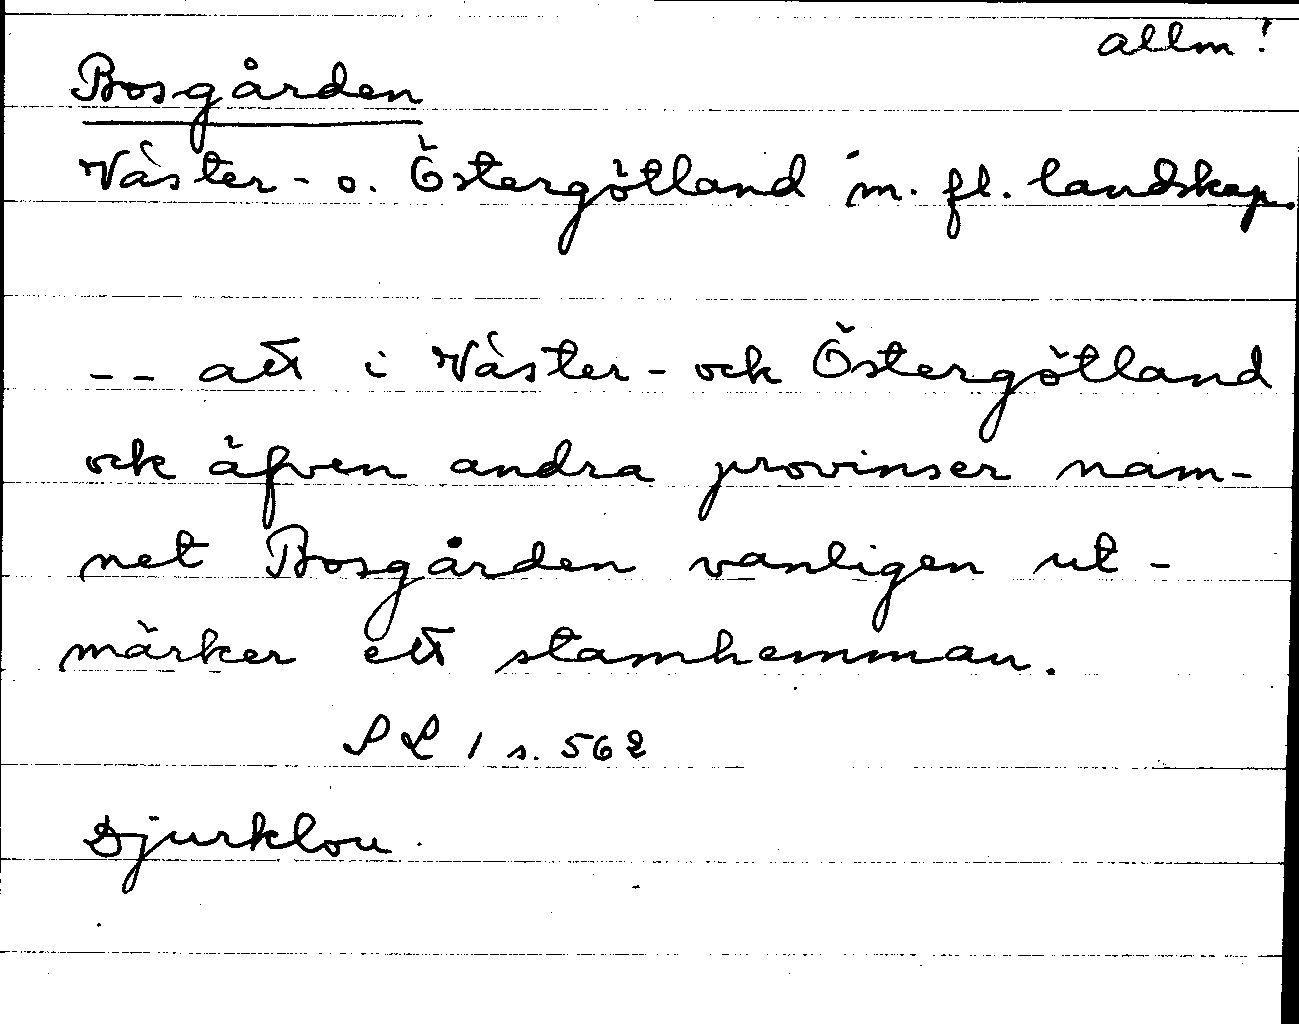 allm!
Bosgården
Väster- o. Östergötland m. fl. landskap.
-- att i Väster- ock Östergötland
ock äfven andra provinser nam-
net Bosgården vanligen ut-
märker ett stamhemman.
SL 1 s. 562
Djurklou